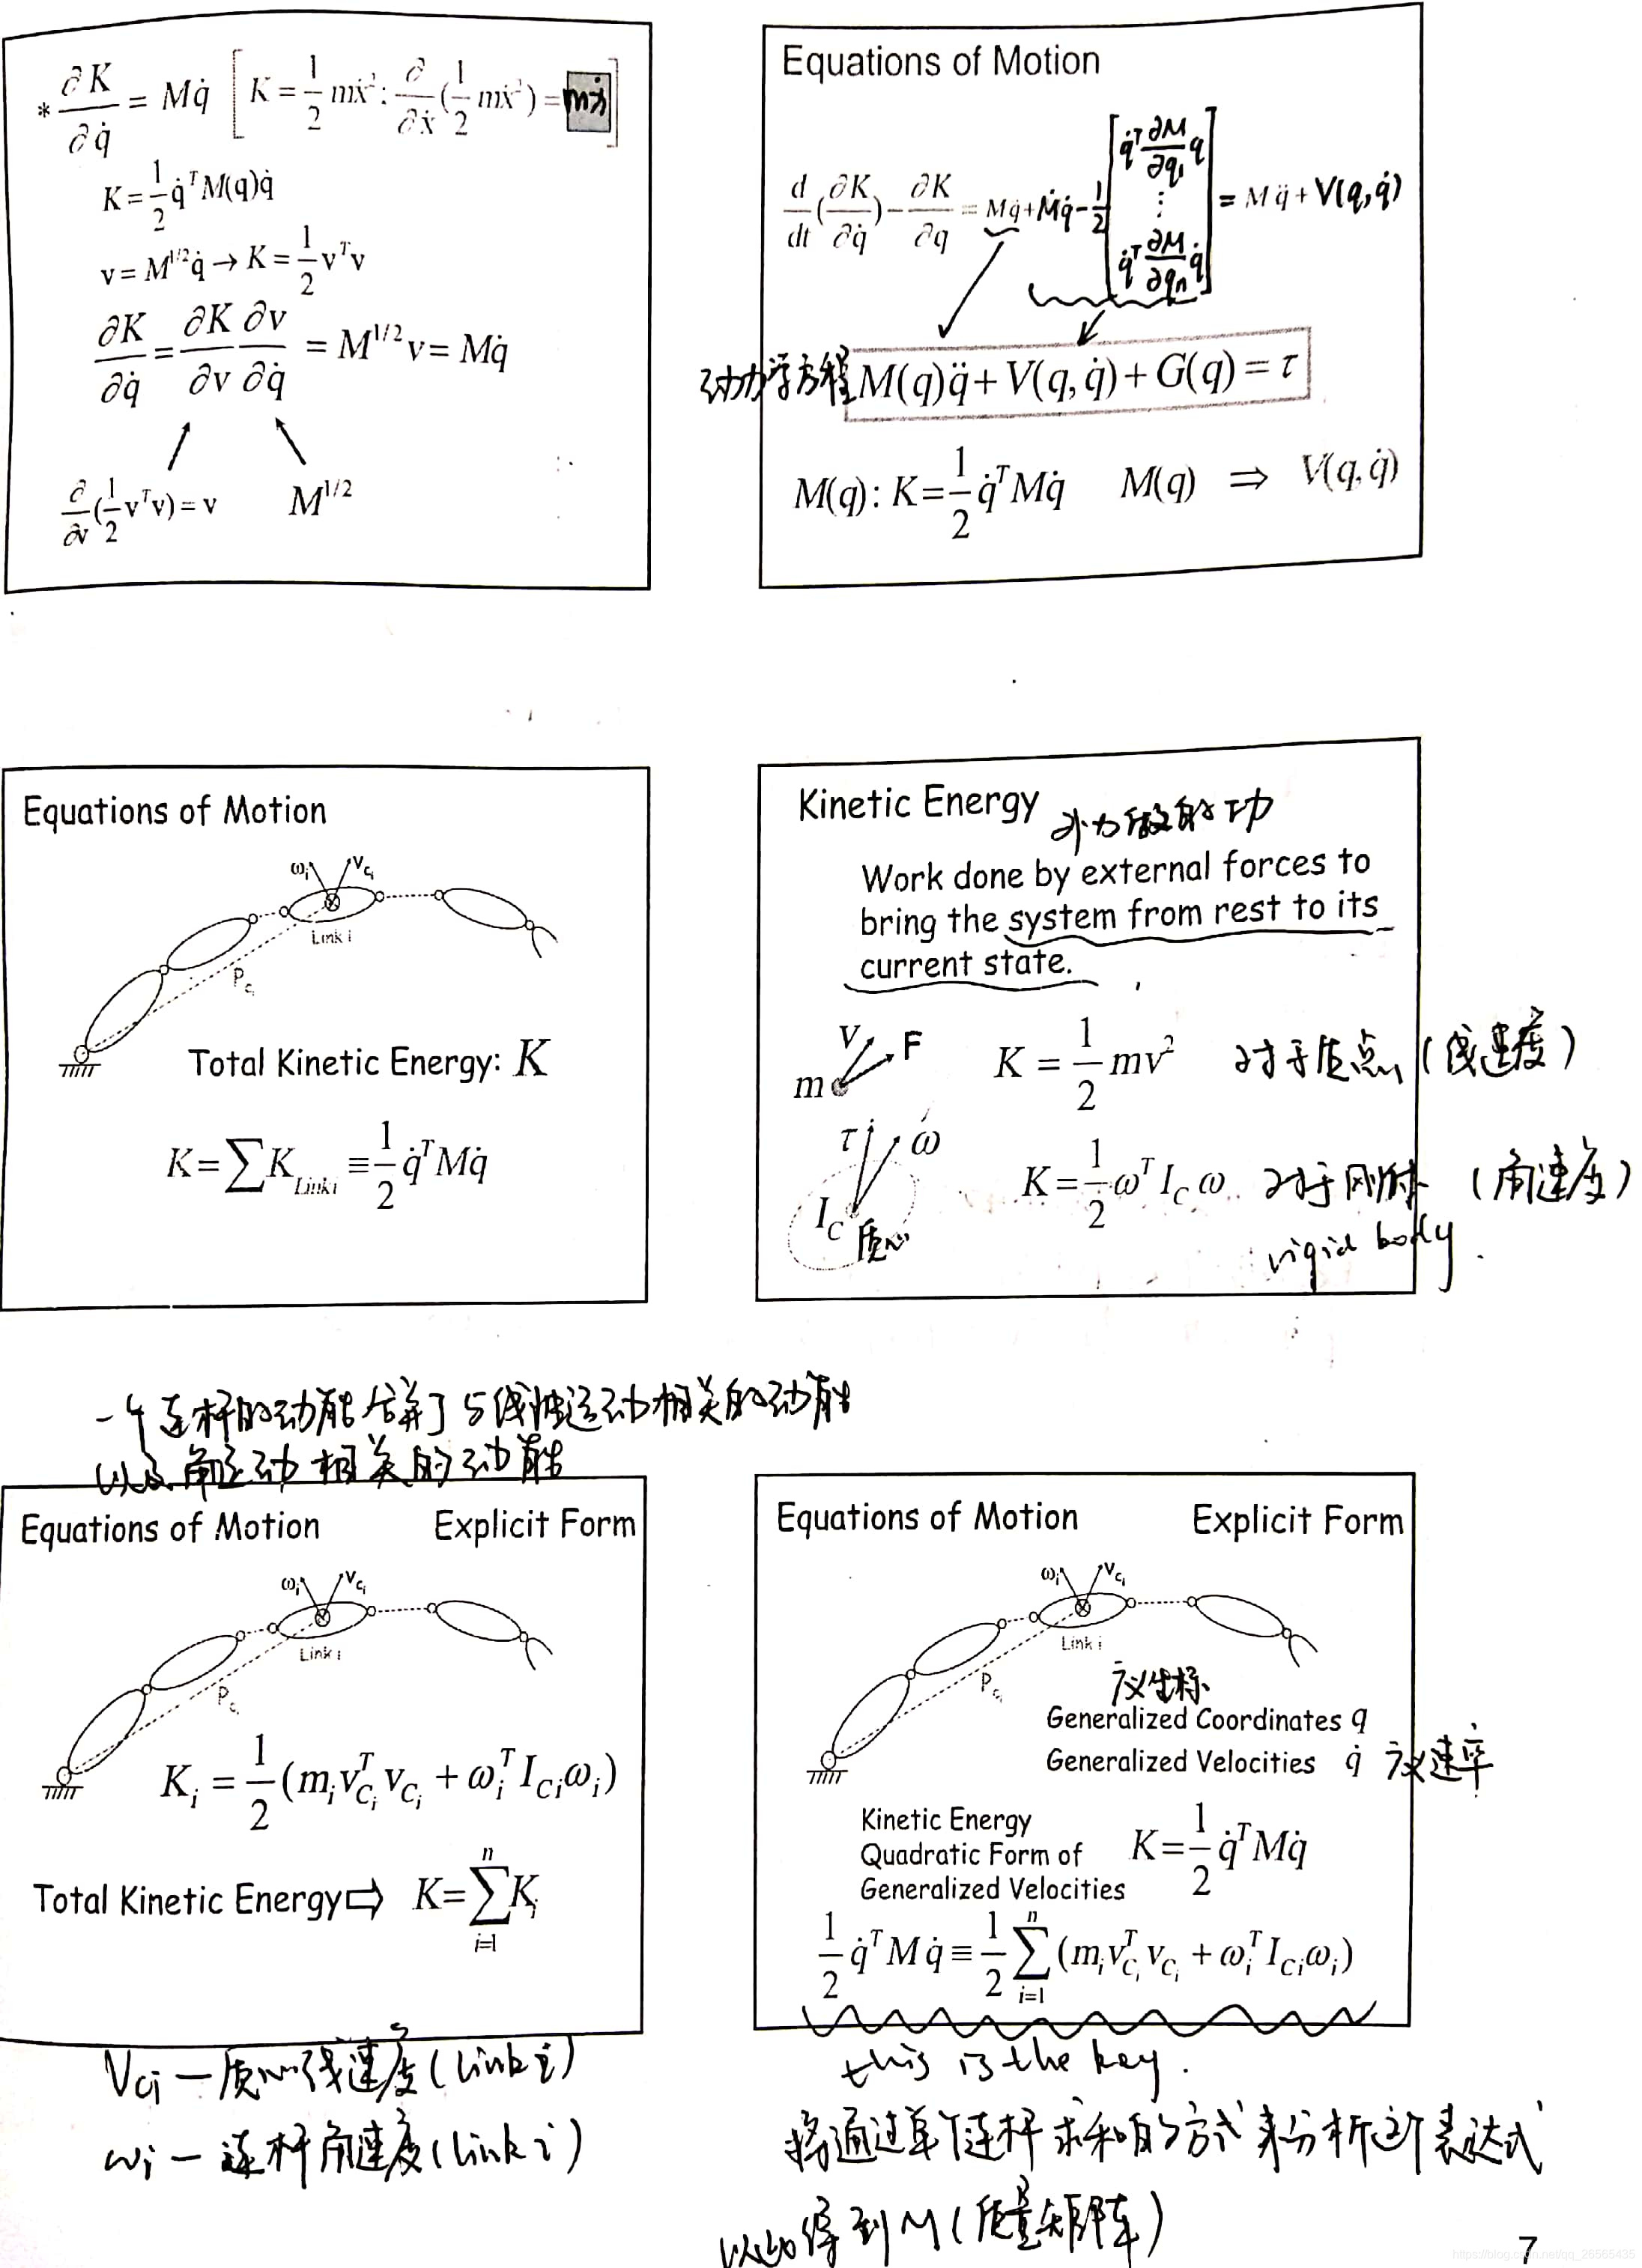 * ∂K/∂q̇ = Mq̇ [K = 1/2 mẋ²: ∂/∂ẋ(1/2 mẋ²) = mẋ]
K = 1/2 q̇ᵀM(q)q̇
v = M^{1/2}q̇ → K = 1/2 vᵀv
∂K/∂q̇ = ∂K/∂v ∂v/∂q̇ = M^{1/2}v = Mq̇
∂/∂v(1/2 vᵀv) = v M^{1/2}
Equations of Motion
d/dt(∂K/∂q̇) − ∂K/∂q = Mq̈ + Ṁq̇ − 1/2 [q̇ᵀ ∂M/∂q₁ q ⋮ q̇ᵀ ∂M/∂qₙ q̇] = Mq̈ + V(q, q̇)
动力学方程 M(q)q̈ + V(q, q̇) + G(q) = τ
M(q): K = 1/2 q̇ᵀMq̇ M(q) ⇒ V(q, q̇)
Equations of Motion
ωᵢ v_{Cᵢ}
Link i
P_{Cᵢ}
Total Kinetic Energy: K
K = ∑K_{Link i} ≡ 1/2 q̇ᵀMq̇
Kinetic Energy 外力做的功
Work done by external forces to
bring the system from rest to its
current state.
v F
m K = 1/2 mv² 对于质点 (线速度)
τ ω
I_C 质心 K = 1/2 ωᵀI_C ω 对于刚体 (角速度)
rigid body.
一个连杆的动能合并了与线性运动相关的动能
以及角运动相关的动能
Equations of Motion Explicit Form
ωᵢ v_{Cᵢ}
Link i
P_{Cᵢ}
Kᵢ = 1/2 (mᵢv_{Cᵢ}ᵀv_{Cᵢ} + ωᵢᵀI_{Cᵢ}ωᵢ)
Total Kinetic Energy ⇨ K = ∑_{i=1}^{n} Kᵢ
V_{Ci} — 质心线速度 (link i)
ωᵢ — 连杆角速度 (link i)
Equations of Motion Explicit Form
ωᵢ v_{Cᵢ}
Link i
P_{Cᵢ}
广义坐标
Generalized Coordinates q
Generalized Velocities q̇ 广义速率
Kinetic Energy
Quadratic Form of K = 1/2 q̇ᵀMq̇
Generalized Velocities
1/2 q̇ᵀMq̇ ≡ 1/2 ∑_{i=1}^{n} (mᵢv_{Cᵢ}ᵀv_{Cᵢ} + ωᵢᵀI_{Cᵢ}ωᵢ)
this is the key.
将通过单个连杆求和的方式来分析这个表达式
得到M(质量矩阵)
7
https://blog.csdn.net/qq_26565435